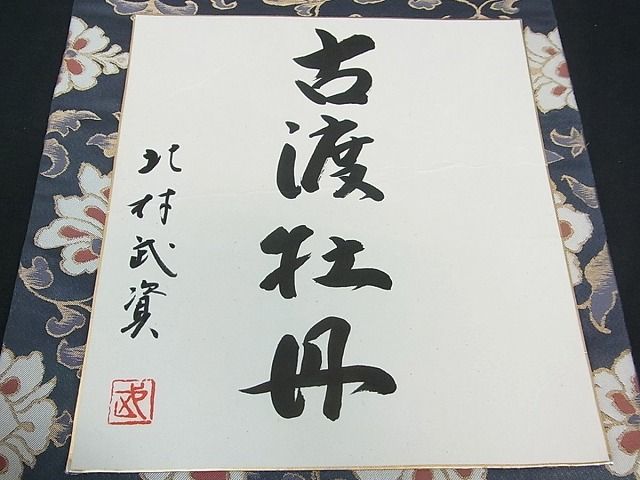 古渡牡丹
北村武資
武